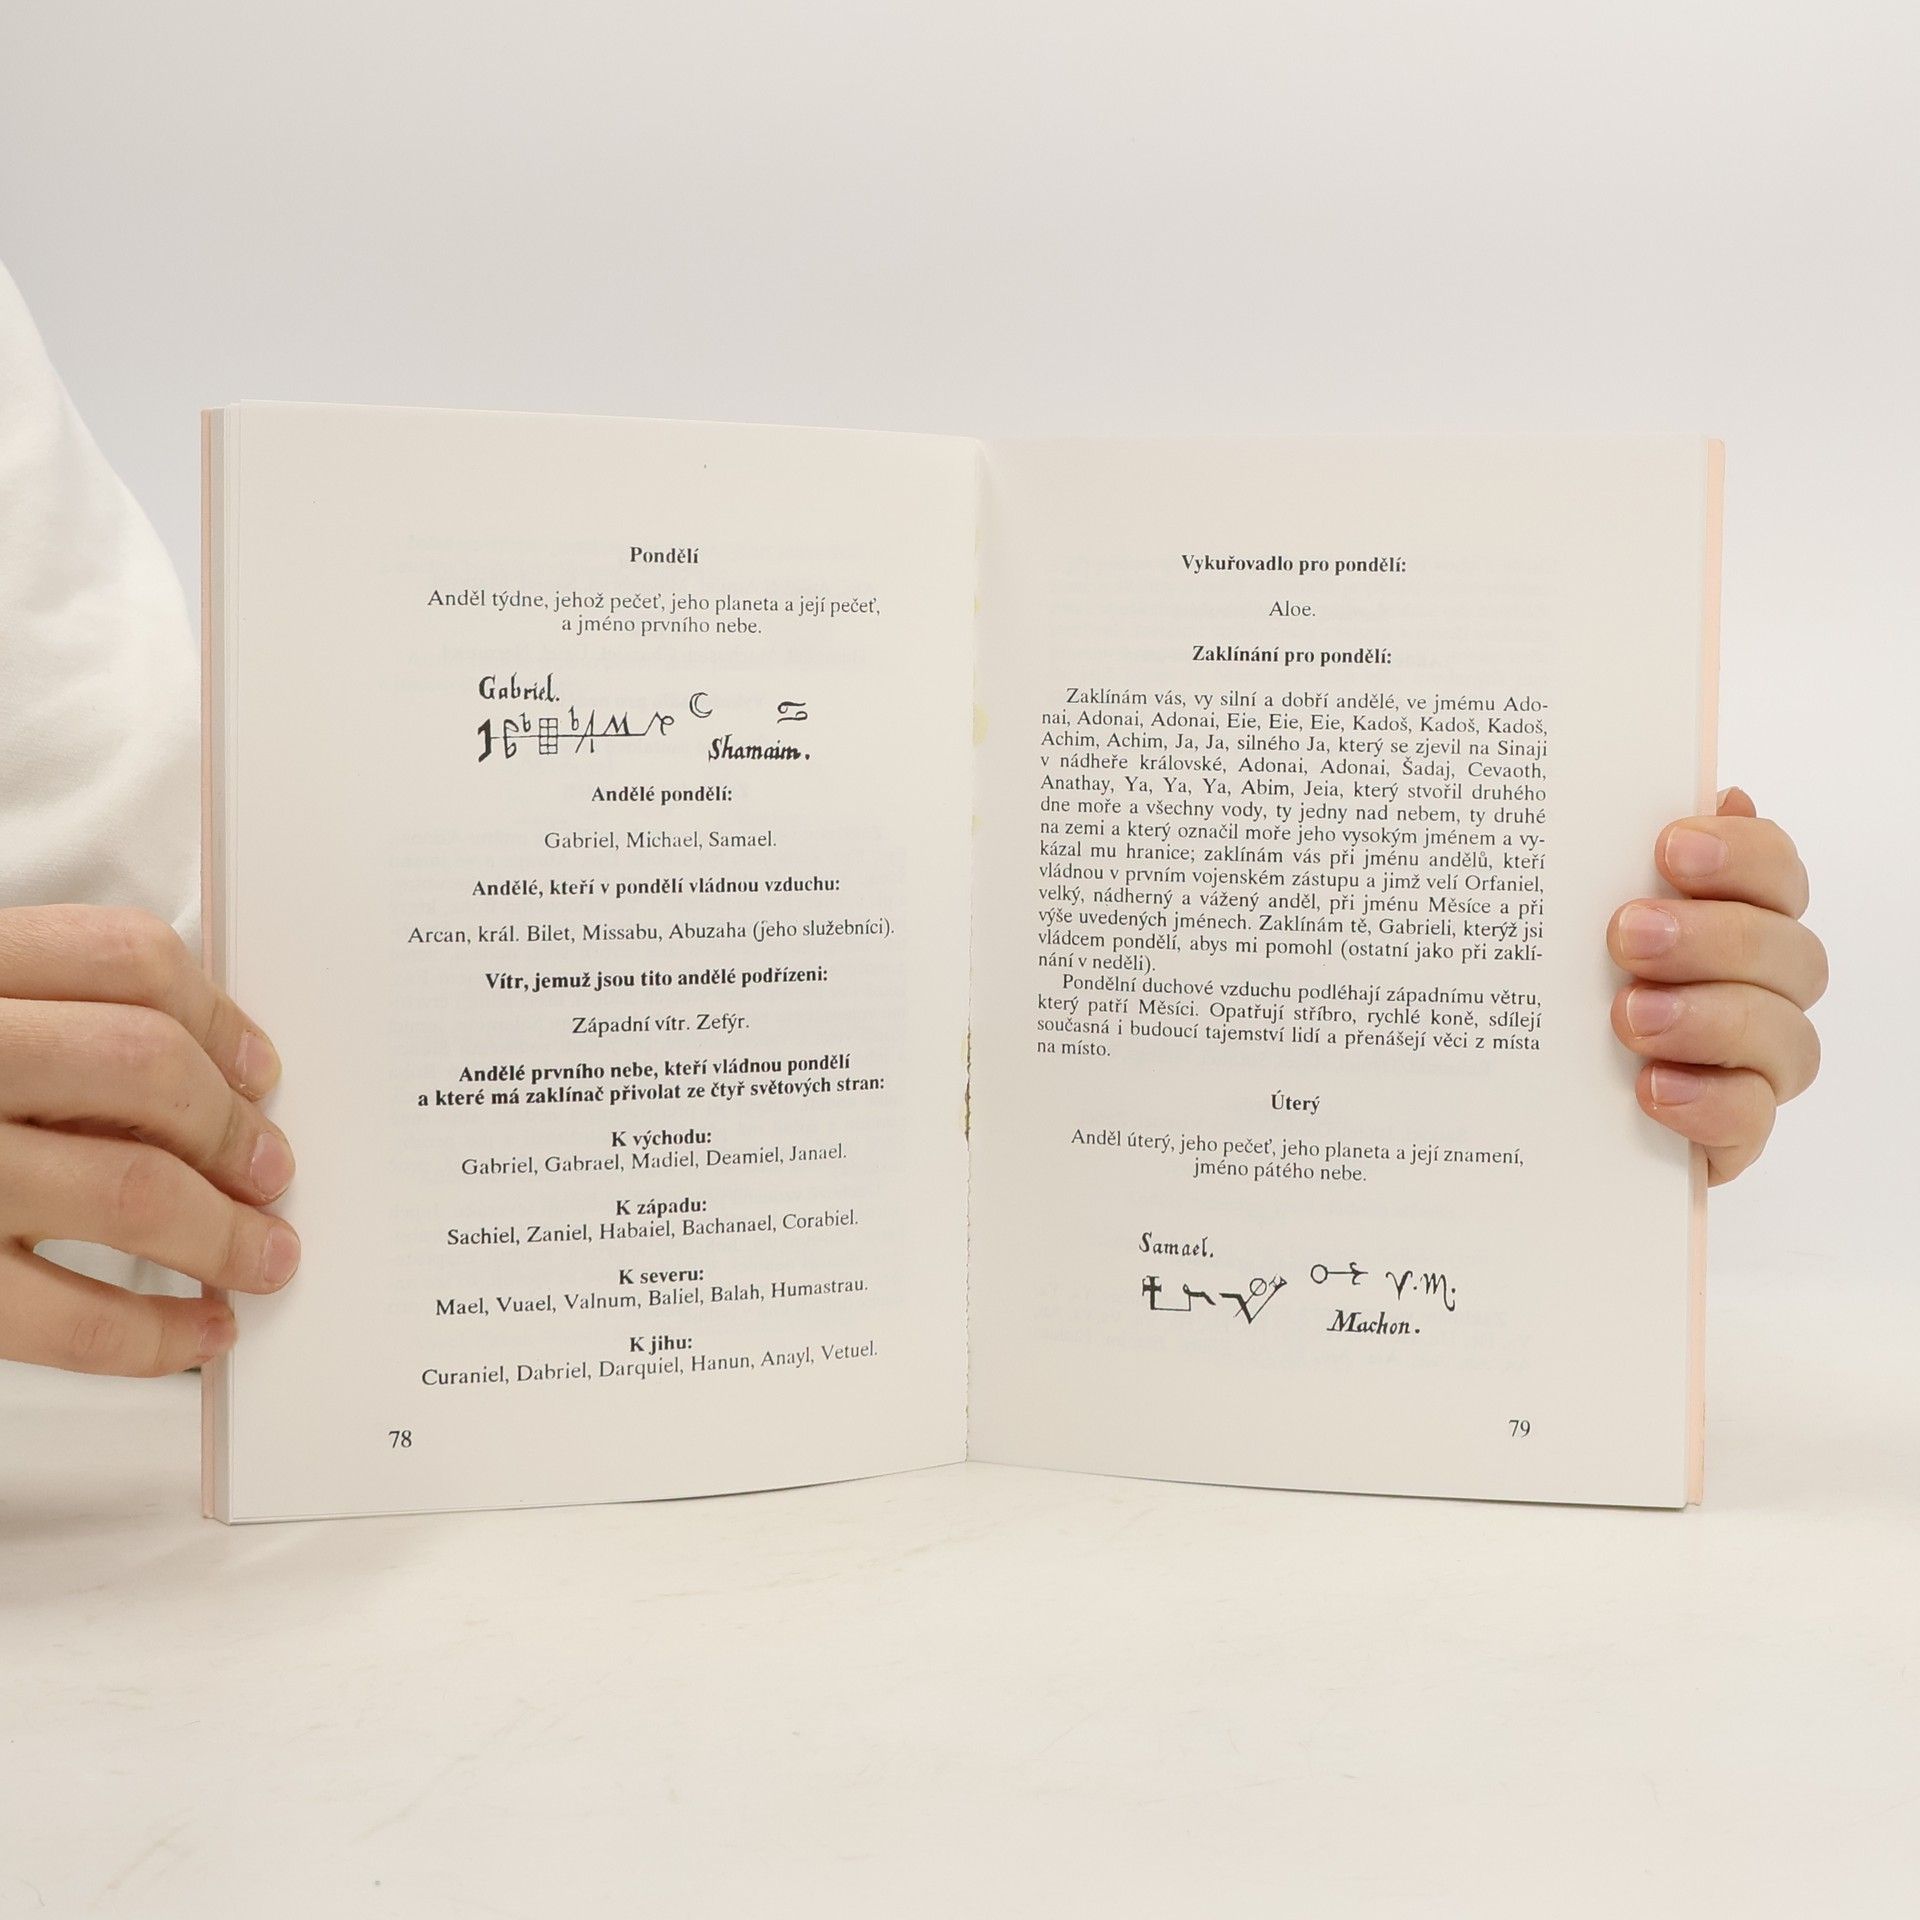 Pondělí
Anděl týdne, jehož pečeť, jeho planeta a její pečeť,
a jméno prvního nebe.
Gabriel.
Shamaim.
Andělé pondělí:
Gabriel, Michael, Samael.
Andělé, kteří v pondělí vládnou vzduchu:
Arcan, král. Bilet, Missabu, Abuzaha (jeho služebníci).
Vítr, jemuž jsou tito andělé podřízeni:
Západní vítr. Zefýr.
Andělé prvního nebe, kteří vládnou pondělí
a které má zaklínač přivolat ze čtyř světových stran:
K východu:
Gabriel, Gabrael, Madiel, Deamiel, Janael.
K západu:
Sachiel, Zaniel, Habaiel, Bachanael, Corabiel.
K severu:
Mael, Vuael, Valnum, Baliel, Balah, Humastrau.
K jihu:
Curaniel, Dabriel, Darquiel, Hanun, Anayl, Vetuel.
78
Vykuřovadlo pro pondělí:
Aloe.
Zaklínání pro pondělí:
Zaklínám vás, vy silní a dobří andělé, ve jmému Ado-
nai, Adonai, Adonai, Eie, Eie, Eie, Kadoš, Kadoš, Kadoš,
Achim, Achim, Ja, Ja, silného Ja, který se zjevil na Sinaji
v nádheře královské, Adonai, Adonai, Šadaj, Cevaoth,
Anathay, Ya, Ya, Ya, Abim, Jeia, který stvořil druhého
dne moře a všechny vody, ty jedny nad nebem, ty druhé
na zemi a který označil moře jeho vysokým jménem a vy-
kázal mu hranice; zaklínám vás při jménu andělů, kteří
vládnou v prvním vojenském zástupu a jimž velí Orfaniel,
velký, nádherný a vážený anděl, při jménu Měsíce a při
výše uvedených jménech. Zaklínám tě, Gabrieli, kterýž jsi
vládcem pondělí, abys mi pomohl (ostatní jako při zaklí-
nání v neděli).
Pondělní duchové vzduchu podléhají západnímu větru,
který patří Měsíci. Opatřují stříbro, rychlé koně, sdílejí
současná i budoucí tajemství lidí a přenášejí věci z místa
na místo.
Úterý
Anděl úterý, jeho pečeť, jeho planeta a její znamení,
jméno pátého nebe.
Samael.
V.M.
Machon.
79